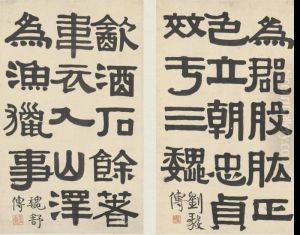 為郡股肱正
色立朝忠貞
效于三魏
劉毅
傳
㱃酒石餘著
韋衣入山澤
為漁獵事
魏舒
傳